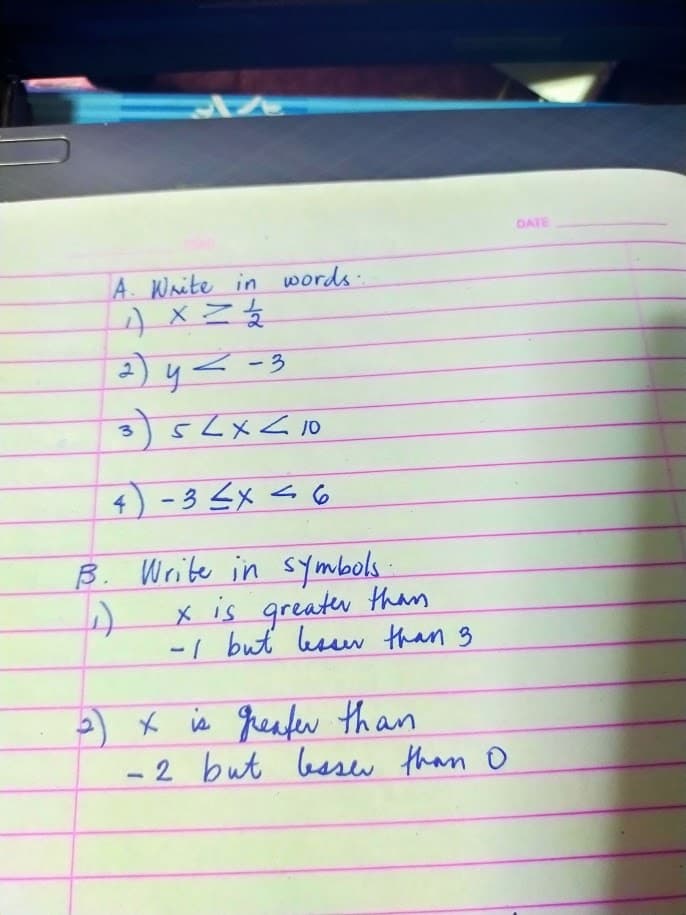 DATE
A. Write in words.
1) x ≥ 1/2
2) y < -3
3) 5 < x < 10
4) -3 ≤ x < 6
B. Write in symbols.
1) x is greater than
-1 but lesser than 3
2) x is greater than
-2 but lesser than 0